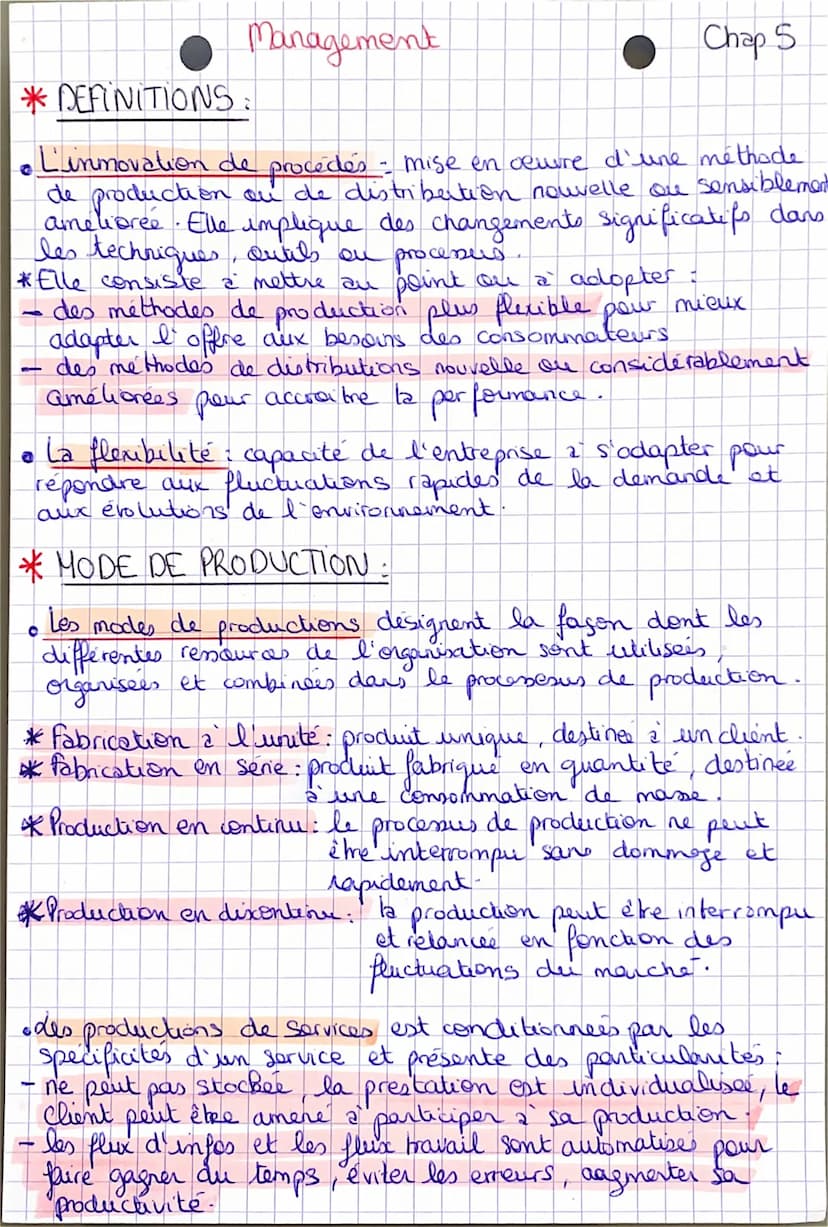 Management
Chap 5
* DEFINITIONS :
• L'innovation de procédés = mise en œuvre d'une méthode
de production ou de distribution nouvelle ou sensiblement
améliorée. Elle implique des changements significatifs dans
les techniques, outils ou processus.
* Elle consiste à mettre au point ou à adopter :
- des méthodes de production plus flexible pour mieux
adapter l'offre aux besoins des consommateurs
- des méthodes de distributions nouvelle ou considérablement
améliorées pour accroître la performance.
• La flexibilité : capacité de l'entreprise à s'adapter pour
répondre aux fluctuations rapides de la demande et
aux évolutions de l'environnement.
* MODE DE PRODUCTION :
• Les modes de productions désignent la façon dont les
différentes ressources de l'organisation sont utilisées,
organisées et combinées dans le processus de production.
* Fabrication à l'unité : produit unique, destiné à un client.
* fabrication en série : produit fabriqué en quantité, destinée
à une consommation de masse.
* Production en continu : le processus de production ne peut
être interrompu sans dommage et
rapidement.
* Production en discontinu : la production peut être interrompu
et relancée en fonction des
fluctuations du marché.
• des productions de services est conditionnées par les
spécificités d'un service et présente des particularités :
- ne peut pas stockée, la prestation est individualisée, le
client peut être amené à participer à sa production.
- les flux d'infos et les flux travail sont automatisés pour
faire gagner du temps, éviter les erreurs, augmenter sa
productivité.